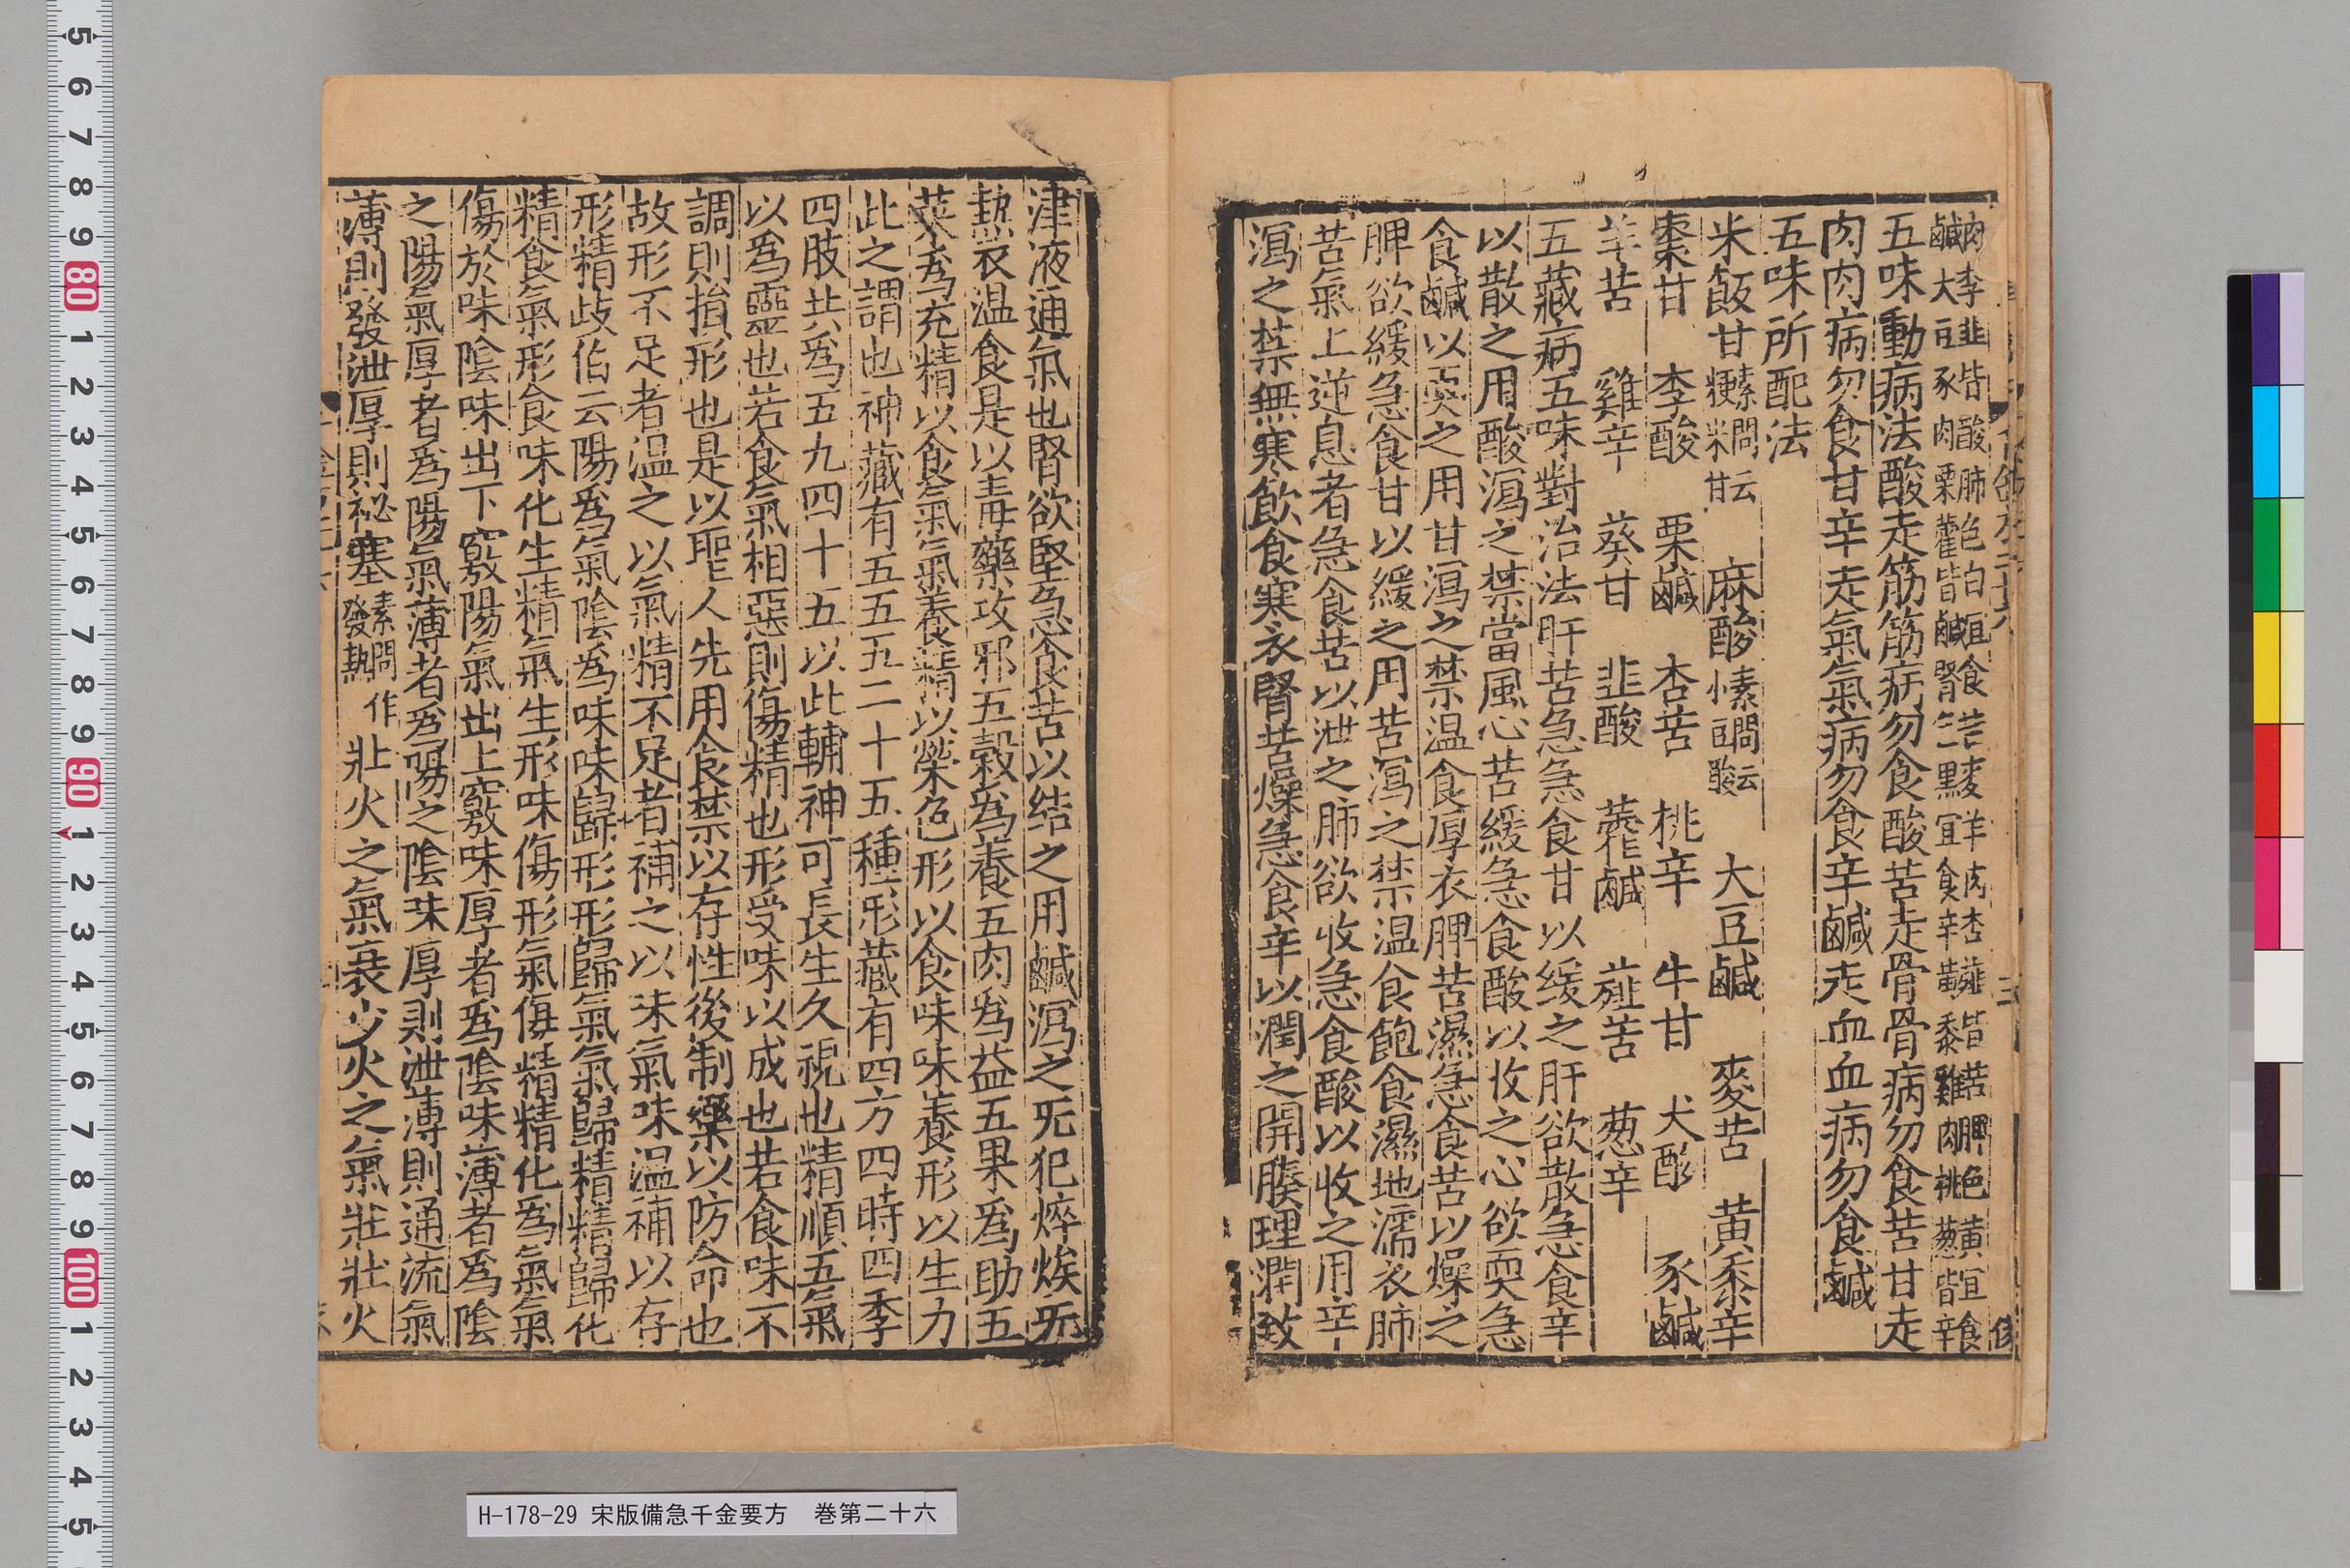 肉李韭皆酸肺色白宜食苦麥羊肉杏薤皆苦脾色黄宜食
鹹大豆豕肉栗藿皆鹹腎色黑宜食辛黄黍雞肉桃葱皆辛
五味動病法酸走筋筋病勿食酸苦走骨骨病勿食苦甘走
肉肉病勿食甘辛走氣氣病勿食辛鹹走血血病勿食鹹
五味所配法
米飯甘素問云粳米甘 麻酸素問云小豆酸 大豆鹹 麥苦 黄黍辛
棗甘 李酸 栗鹹 杏苦 桃辛 牛甘 犬酸 豕鹹
羊苦 雞辛 葵甘 韭酸 藿鹹 薤苦 葱辛
五藏病五味對治法肝苦急急食甘以緩之肝欲散急食辛
以散之用酸瀉之禁當風心苦緩急食酸以收之心欲耎急
食鹹以耎之用甘瀉之禁温食厚衣脾苦濕急食苦以燥之
脾欲緩急食甘以緩之用苦瀉之禁温食飽食濕地濡衣肺
苦氣上逆息者急食苦以泄之肺欲收急食酸以收之用辛
瀉之禁無寒飲食寒衣腎苦燥急食辛以潤之開腠理潤致
津液通氣也腎欲堅急食苦以结之用鹹瀉之旡犯焠㶼旡
熱衣温食是以毒藥攻邪五穀爲養五肉爲益五果爲助五
菜爲充精以食氣氣養精以榮色形以食味味養形以生力
此之謂也神藏有五五五二十五種形藏有四方四時四季
四肢共爲五九四十五以此輔神可長生久視也精順五氣
以爲靈也若食氣相惡則傷精也形受味以成也若食味不
調則損形也是以聖人先用食禁以存性後制藥以防命也
故形不足者温之以氣精不足者補之以味氣味温補以存
形精歧伯云陽爲氣陰爲味味歸形形歸氣氣歸精精歸化
精食氣形食味化生精氣生形味傷形氣傷精精化爲氣氣
傷於味陰味出下竅陽氣出上竅味厚者爲陰味薄者爲陰
之陽氣厚者爲陽氣薄者爲陽之陰味厚則泄薄則通流氣
薄則發泄厚則祕塞素問作發熱壯火之氣衰少火之氣壯壯火
H-178-29 宋版備急千金要方　巻第二十六
5 6 7 8 9 80 1 2 3 4 5 6 7 8 9 90 1 2 3 4 5 6 7 8 9 100 1 2 3 4 5